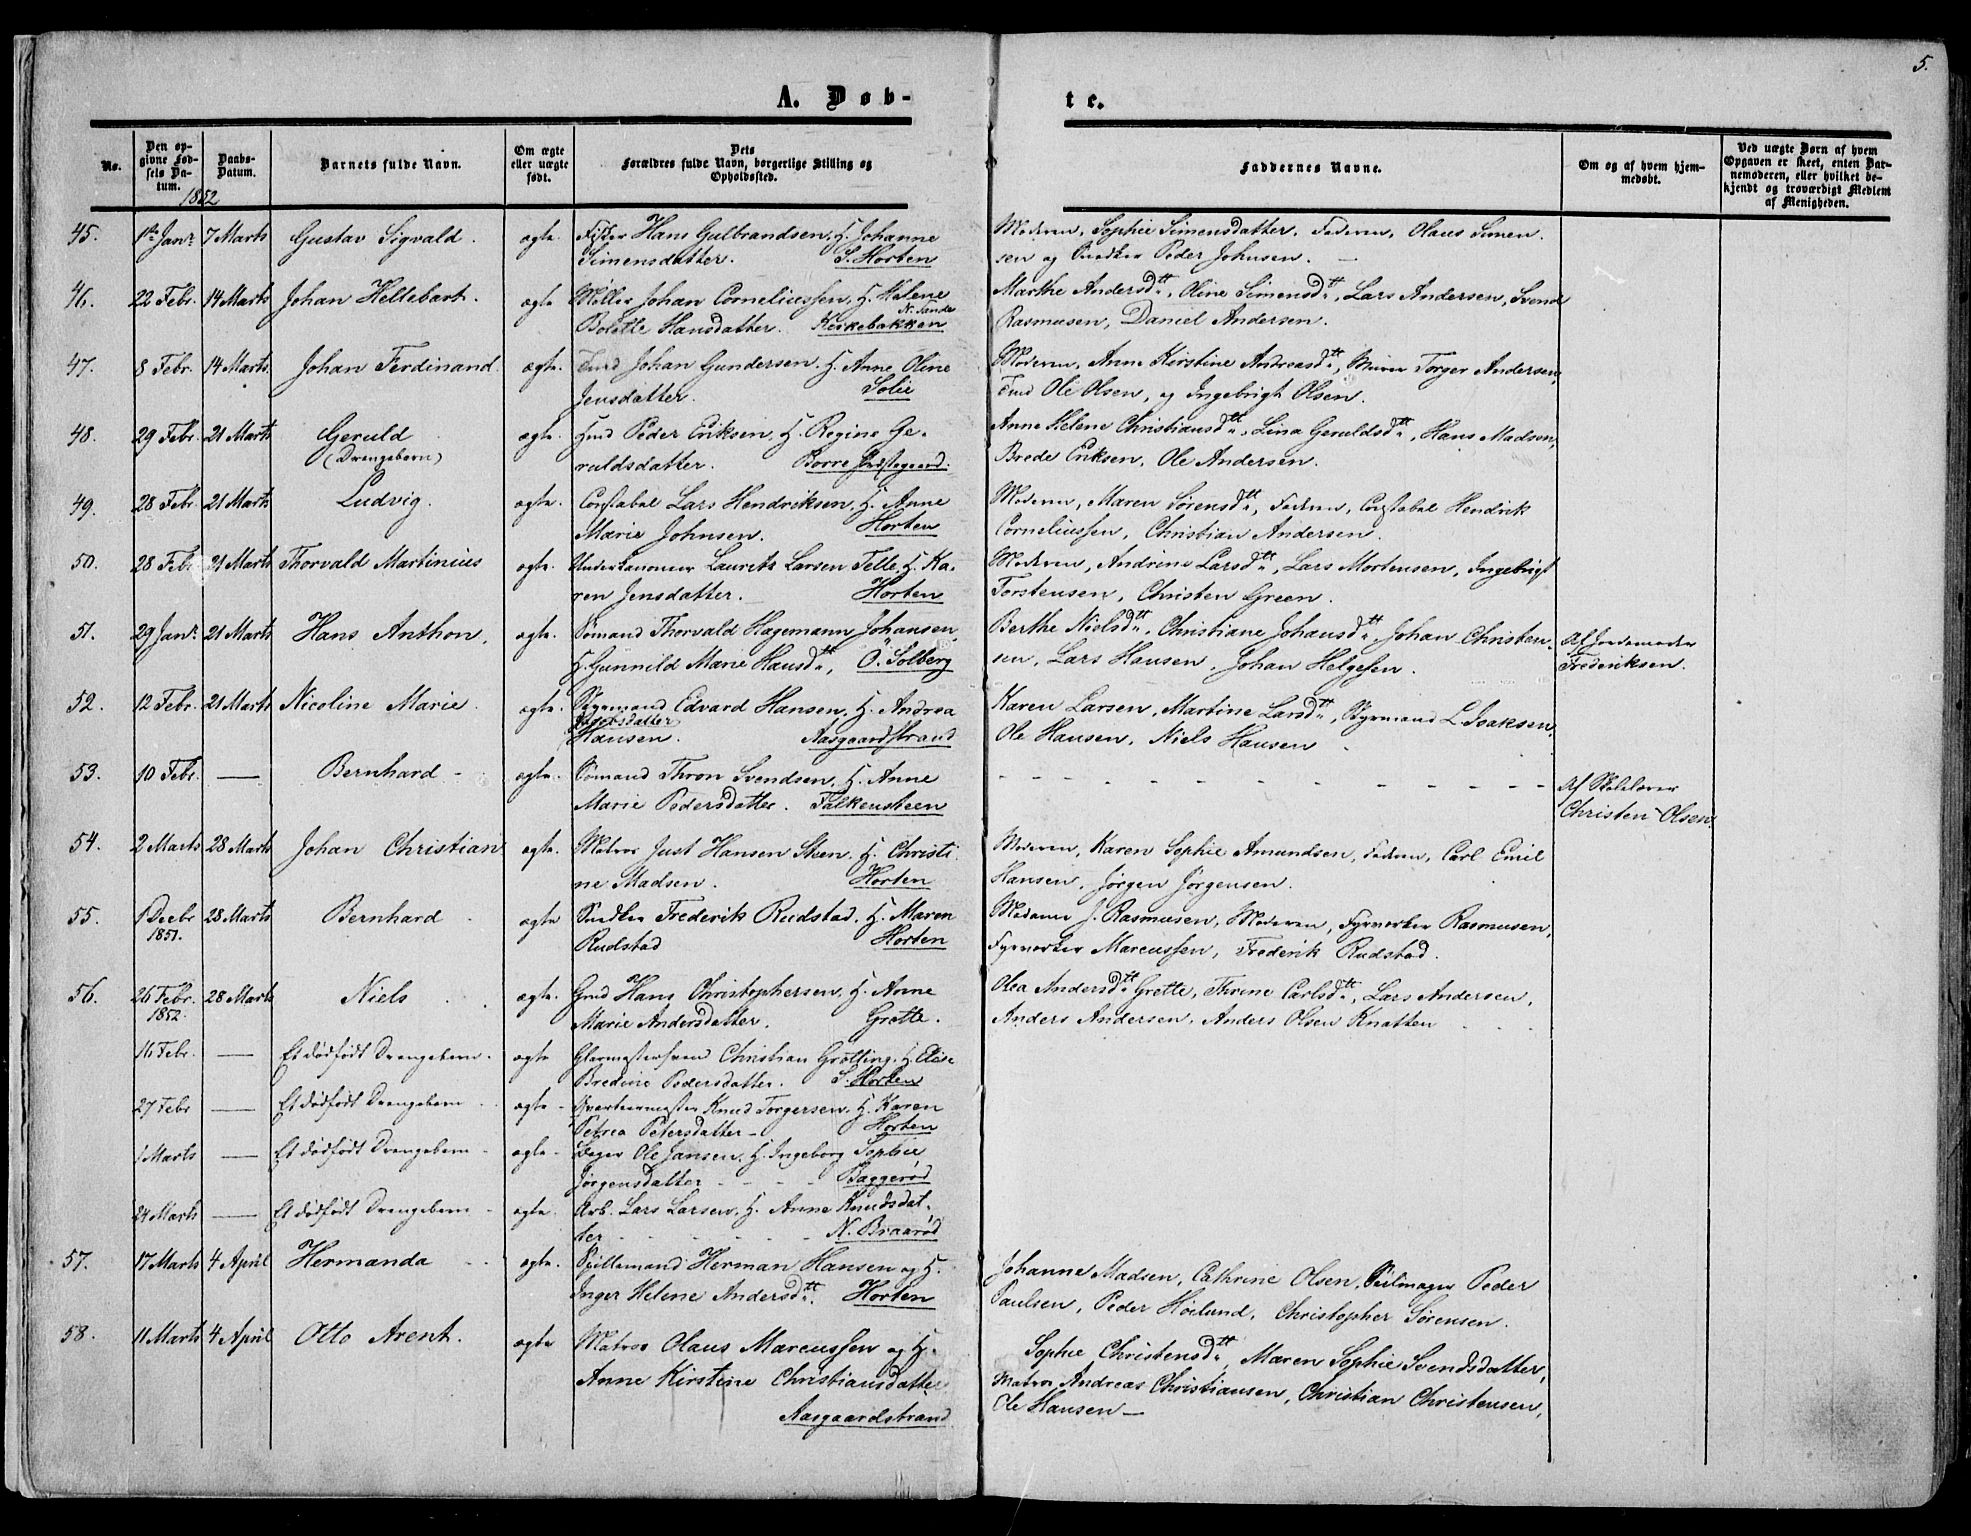 5.
A. Døb-
te.
No.
Den op-
givne Fød-
sels Da-
tum.
Daabs-
Datum.
Barnets fulde Navn.
Om ægte
eller uægte
født.
Dets
Forældres fulde Navn, borgerlige Stilling og
Opholdssted.
Faddernes Navne.
Om og af hvem hjem-
medøbt.
Ved uægte Børn af hvem
Opgaven er skeet, enten Bar-
nemoderen, eller hvilket be-
kjendt og troværdigt Medlem
af Menigheden.
1852
45. 1ste Janr. 7 Marts Gustav Sigvald. ægte Fisker Hans Gulbrandsen, H. Johanne
Simensdatter. S. Horten
Moderen, Sophie Simensdatter, Faderen, Olaus Simen-
sen og Snedker Peder Johnsen.
46. 22 Febr. 14 Marts Johan Heltebart. ægte Møller Johan Corneliussen, H. Helene
Bolette Hansdatter. N. Sande
Kirkebakken
Marthe Andersdtt., Oline Simensdtt., Lars Andersen, Svend
Rasmusen, Daniel Andersen.
47. 8 Febr. 14 Marts Johan Ferdinand. ægte. Johan Gundersen. H. Anne Oline
Jensdatter. Solie
Moderen, Anne Kirstine Andreasdtt., Murer Torger Andersen,
Ole Olsen, og Ingebrigt Olsen.
48. 29 Febr. 21 Marts Geruld ægte. Hmd Peder Eriksen, H. Regine Ge-
(Drengebarn)
ruldsdatter. Borre Prestegaard.
Anne Helene Christiansdtt., Lina Geruldsdtt., Hans Madsen,
Brede Eriksen, Ole Andersen.
49. 28 Febr. 21 Marts Ludvig. ægte. Constabel Lars Hendriksen, H. Anne
Marie Johnsen. Horten
Moderen, Maren Sørensdtt., Faderen, Constabel Hendrik
Corneliussen, Christian Andersen.
50. 28 Febr. 21 Marts Thorvald Martinius ægte. Underkanoneer Laurits Larsen Telle, H. Ka-
ren Jensdatter. Horten
Moderen, Andrine Larsdtt., Lars Mortensen, Ingebrigt
Torstensen, Christen Green.
51. 29 Janr. 21 Marts Hans Anthon. ægte. Sømand Thorvald Hagemann Johansen,
H. Gunnild Marie Hansdtt., O. Solberg
Berthe Nielsdtt., Christiane Johansdtt., Johan Christen-
sen, Lars Hansen, Johan Helgesen.
Af Jordemoder
Frederiksen.
52. 12 Febr. 21 Marts Nicoline Marie. ægte. Styrmand Edvard Hansen, H. Andrea
Hansen. Aasgaardstrand
Karen Larsen, Martine Larsdtt., Styrmand L. Isaksen,
Ole Hansen, Niels Hansen
53. 10 Febr. — Bernhard - ægte. Sømand Thron Svendsen, H. Anne
Marie Pedersdatter. Falkensteen
Af Skolelærer
Christen Olsen.
54. 2 Marts 28 Marts Johan Christian ægte. Matros Just Hansen Steen. H. Christi-
ne Madsen. Horten
Moderen, Karen Sophie Amundsen, Faderen, Carl Emil
Hansen, Jørgen Jørgensen.
55. 1 Decbr 28 Marts Bernhard ægte Snedker Frederik Rudstad, H. Maren
1851.
Rudstad Horten
Madame J. Rasmusen, Moderen, Fyrverker Rasmusen,
Fyrverker Marcussen, Frederik Rudstad.
56. 26 Febr. 28 Marts Niels ægte. Gmd Hans Christophersen, H. Anne
1852.
Marie Andersdatter. Grette.
Olea Andersdtt. Grette, Thrine Carlsdtt., Lars Andersen,
Anders Andersen, Anders Olsen Knatten
16 Febr. — Et dødfødt Drengebarn. ægte Glarmestersvend Christian Grølling. H. Elise
Bredine Pedersdatter. S. Horten
27 Febr — Et dødfødt Drengebarn ægte - Qvarteermester Knud Torgersen. H. Karen
Petrea Petersdatter - Horten
1 Marts — Et dødfødt Drengebarn - ægte - Bager Ole Jansen. H. Ingeborg Sophie
Jørgensdatter - - - - Baggerød
24 Marts — Et dødfødt Drengebarn - ægte. Arb. Lars Larsen. H. Anne Knudsdat-
ter - - - - - - N. Braarød
57. 17 Marts 4 April Hermanda ægte. Spillemand Herman Hansen og H.
Inger Helene Andersdtt. Horten
Johanne Madsen, Cathrine Olsen, Seilmager Peder
Paulsen, Peder Høilund, Christopher Sørensen.
58. 11 Marts 4 April Otto Arent. ægte Matros Olaus Marcussen og H.
Anne Kirstine Christiansdatter
Aasgaardstrand
Sophie Christensdtt., Maren Sophie Svendsdatter,
Matros Andreas Christiansen, Christian Christensen,
Ole Hansen —